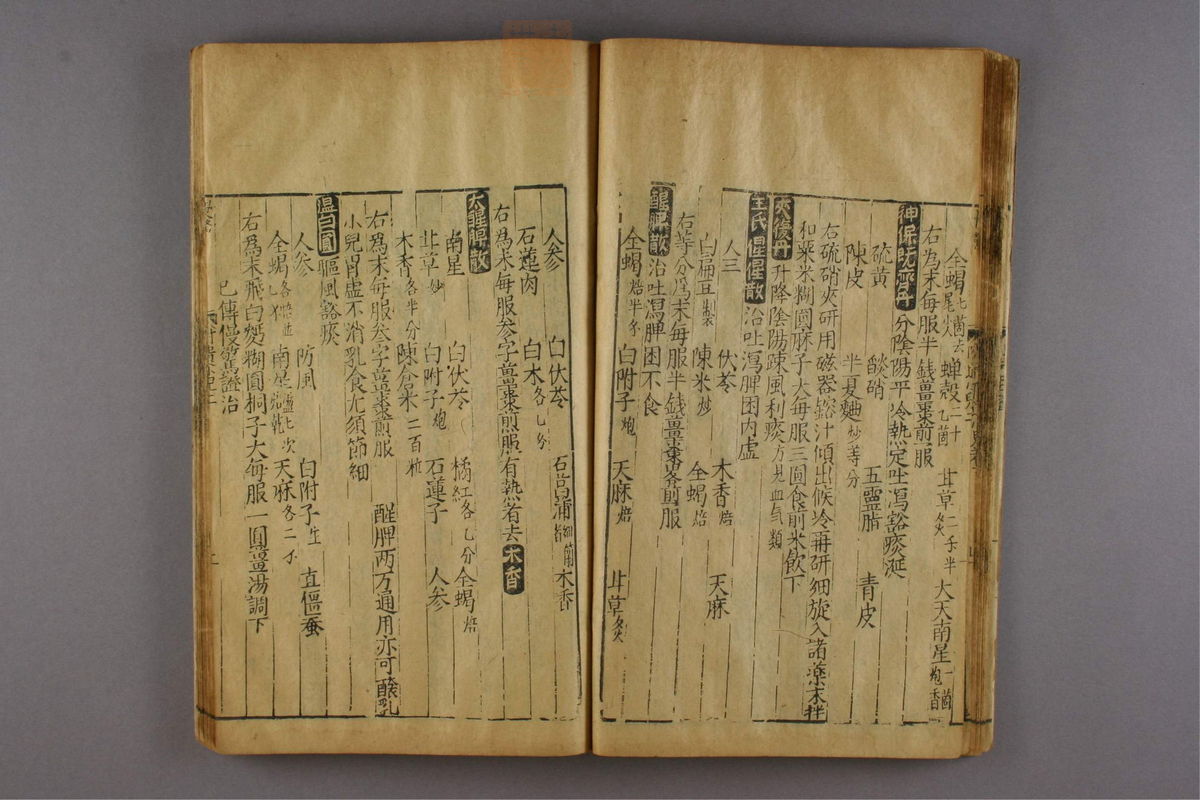 全蝎七箇去尾 蟬殻二十乙箇 甘草二千半炙 大天南星一箇炮香
右為末每服半錢薑棗煎服
神保既濟丹 分陰陽平冷熱定吐瀉豁痰涎
硫黄 熖硝 五靈脂 青皮
陳皮 半夏麯炒等分
右硫硝夾研用磁器鎔汁傾出候冷再研細旋入諸藥末拌
和粟米糊圓麻子大每服三圓食前米飲下
來復丹 升降陰陽疎風利痰方見血氣類
王氏惺惺散 治吐瀉脾困内虚
人三 伏苓 木香焙 天麻
白扁豆製 陳米炒 全蝎焙
右等分為末每服半錢薑棗煎服
醒脾散 治吐瀉脾困不食
全蝎焙半千 白附子炮 天麻焙 甘草炙
人参 白伏苓 石菖蒲細節者 木香
石蓮肉 白术各乙分
右為末每服参字薑棗煎服有熱者去木香
大醒脾散
南星 白伏苓 橘紅各乙分 全蝎焙
甘草炒 白附子炮 石蓮子 人参
木香各半分 陳倉米二百粒
右為末每服参字薑棗煎服 醒脾两方通用亦可釀乳
小兒胃虚不消乳食尤須節細
温白圓 驅風豁痰
人参 防風 白附子生 直僵蚕
全蝎各焙 南星 天麻各二千
右為末飛白麪糊圓桐子大每服一圓薑湯調下
已傳慢驚證治